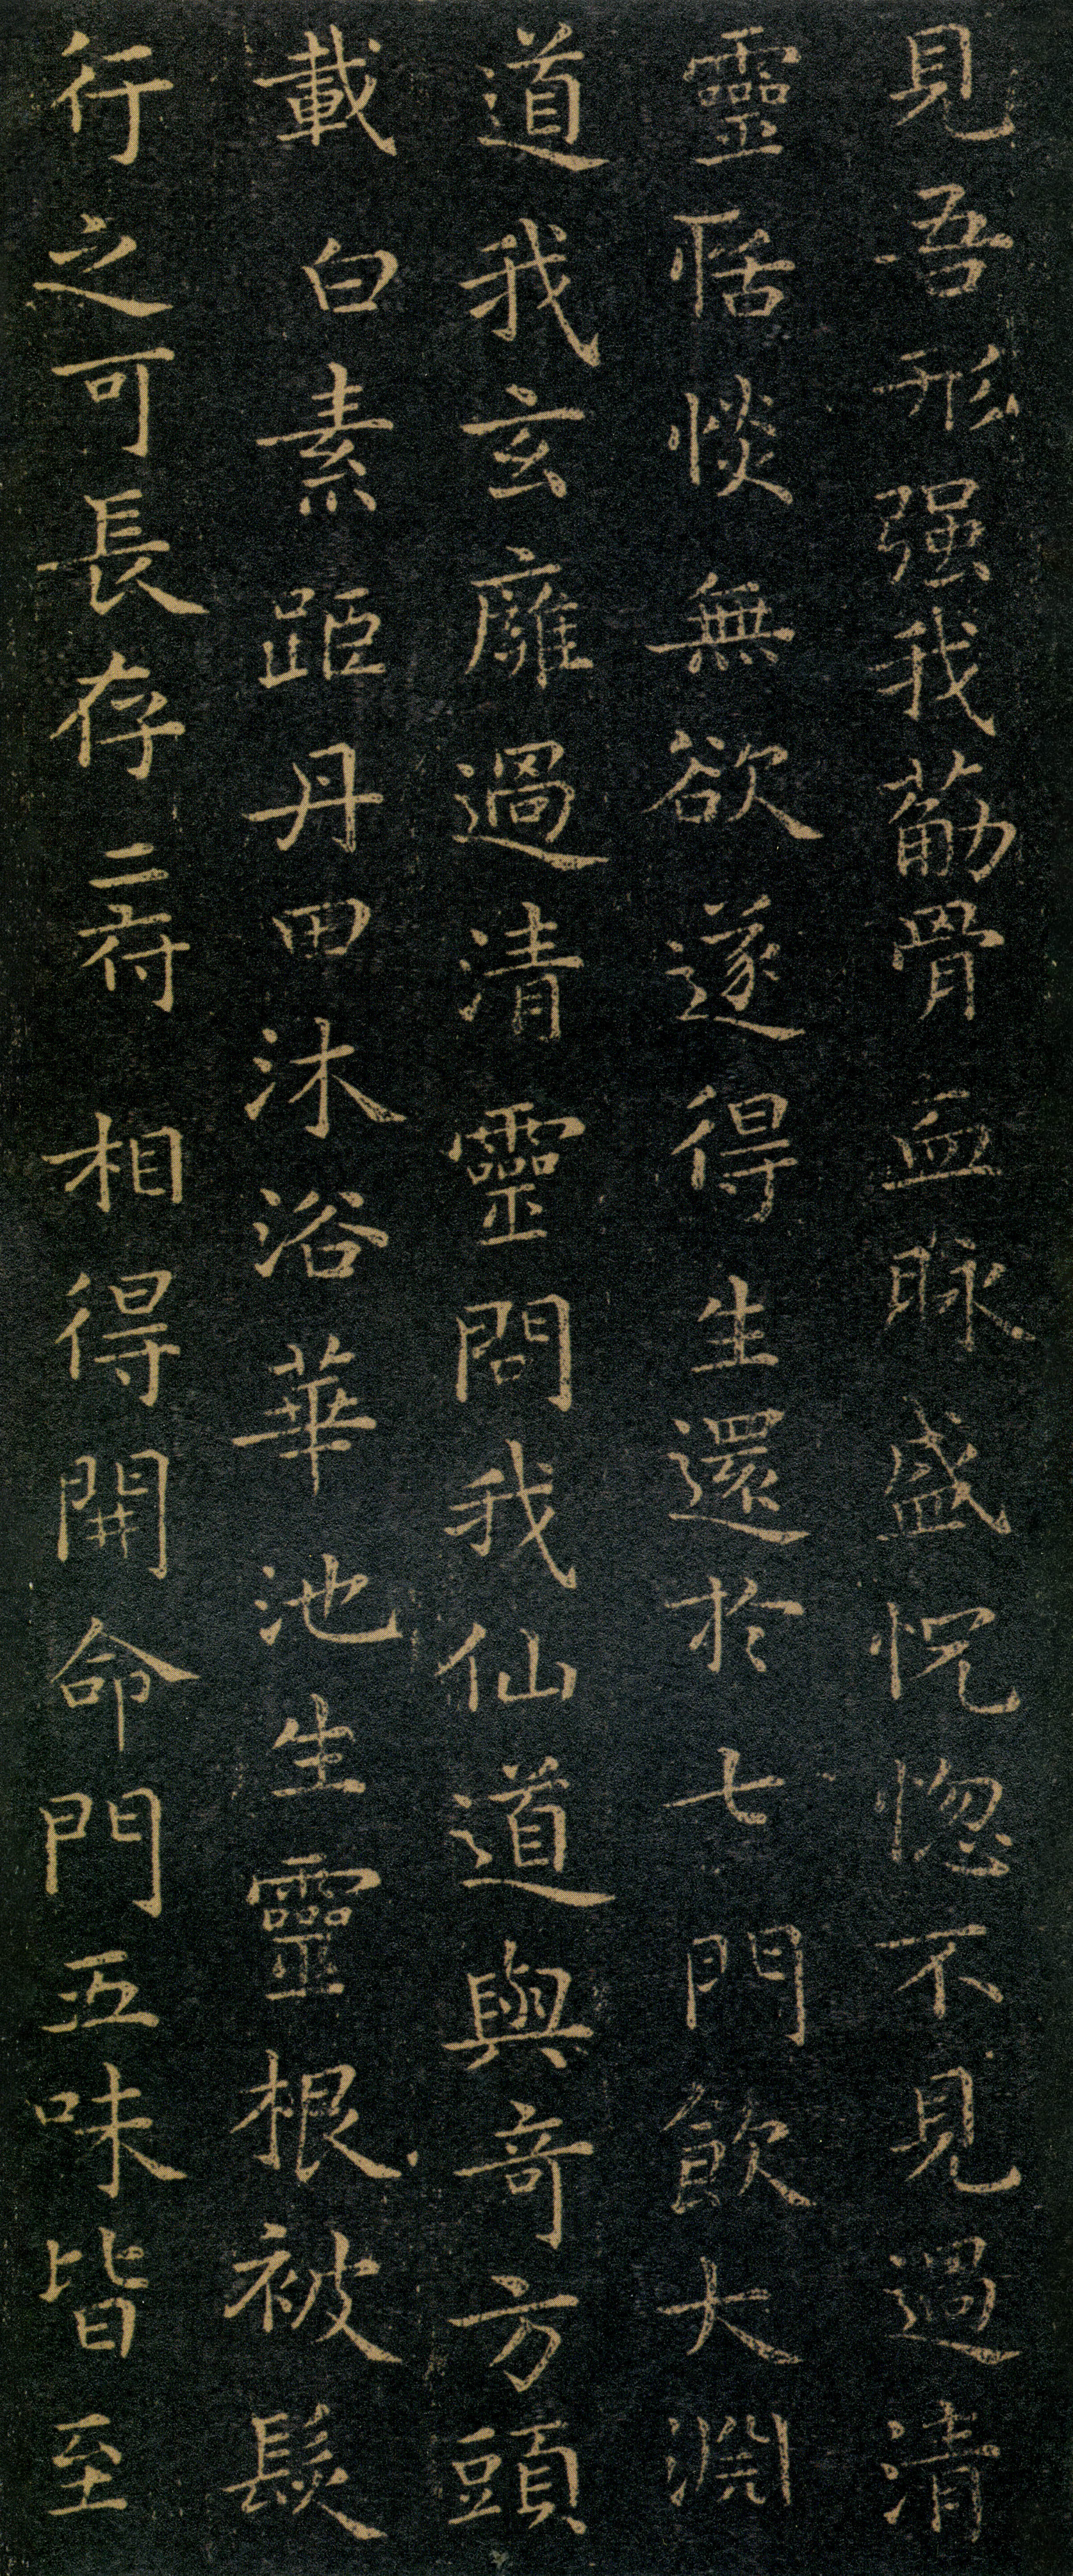 見吾形强我葪骨血眽盛怳惚不見過清
靈恬惔無欲遂得生還於七門飮大淵
道我玄廱過清靈問我仙道與奇方頭
載白素距丹田沐浴華池生靈根被髮
行之可長存二府相得開命門五味皆至